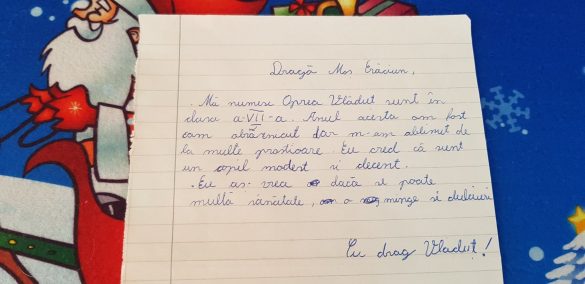 Dragă Moș Crăciun,
Mă numesc Oprea Vlăduț sunt în
clasa a VII-a. Anul acesta am fost
cam obraznicuț dar m-am abținut de
la multe prostioare. Eu cred că sunt
un copil modest și decent.
Eu aș vrea dacă se poate
multă sănătate, o minge și dulciuri
Cu drag Vlăduț!